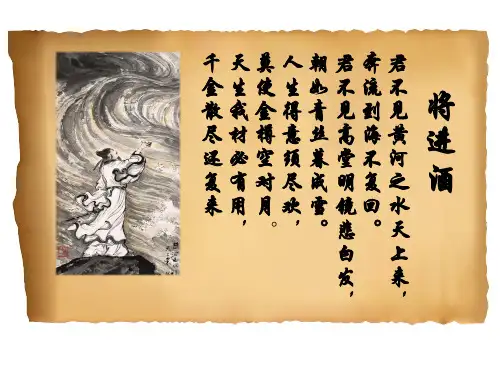 将进酒
君不见黄河之水天上来，
奔流到海不复回。
君不见高堂明镜悲白发，
朝如青丝暮成雪。
人生得意须尽欢，
莫使金樽空对月。
天生我材必有用，
千金散尽还复来